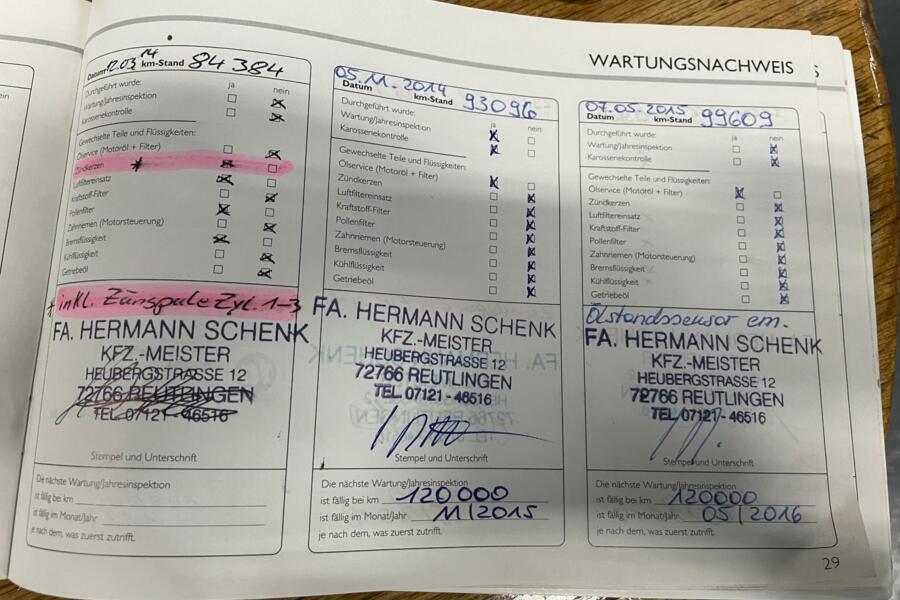 WARTUNGSNACHWEIS
Datum 12.03.14 km-Stand 84384
Durchgeführt wurde: ja nein
Wartung/Jahresinspektion
Karosseriekontrolle
Gewechselte Teile und Flüssigkeiten:
Ölservice (Motoröl + Filter)
Zündkerzen *
Luftfiltereinsatz
Kraftstoff-Filter
Pollenfilter
Zahnriemen (Motorsteuerung)
Bremsflüssigkeit
Kühlflüssigkeit
Getriebeöl
* inkl. Zünspule Zyl. 1-3
FA. HERMANN SCHENK
KFZ.-MEISTER
HEUBERGSTRASSE 12
72766 REUTLINGEN
TEL. 07121 - 46516
Stempel und Unterschrift
Die nächste Wartung/Jahresinspektion
ist fällig bei km
ist fällig im Monat/Jahr
je nach dem, was zuerst zutrifft.
05.11.2014
Datum km-Stand 93096
Durchgeführt wurde: ja nein
Wartung/Jahresinspektion
Karosseriekontrolle
Gewechselte Teile und Flüssigkeiten:
Ölservice (Motoröl + Filter)
Zündkerzen
Luftfiltereinsatz
Kraftstoff-Filter
Pollenfilter
Zahnriemen (Motorsteuerung)
Bremsflüssigkeit
Kühlflüssigkeit
Getriebeöl
FA. HERMANN SCHENK
KFZ.-MEISTER
HEUBERGSTRASSE 12
72766 REUTLINGEN
TEL. 07121 - 46516
Stempel und Unterschrift
Die nächste Wartung/Jahresinspektion
ist fällig bei km 120000
ist fällig im Monat/Jahr 11/2015
je nach dem, was zuerst zutrifft.
07.05.2015
Datum km-Stand 99609
Durchgeführt wurde: ja nein
Wartung/Jahresinspektion
Karosseriekontrolle
Gewechselte Teile und Flüssigkeiten:
Ölservice (Motoröl + Filter)
Zündkerzen
Luftfiltereinsatz
Kraftstoff-Filter
Pollenfilter
Zahnriemen (Motorsteuerung)
Bremsflüssigkeit
Kühlflüssigkeit
Getriebeöl
Ölstandssensor ern.
FA. HERMANN SCHENK
KFZ.-MEISTER
HEUBERGSTRASSE 12
72766 REUTLINGEN
TEL. 07121 - 46516
Stempel und Unterschrift
Die nächste Wartung/Jahresinspektion
ist fällig bei km 120000
ist fällig im Monat/Jahr 05/2016
je nach dem, was zuerst zutrifft.
29